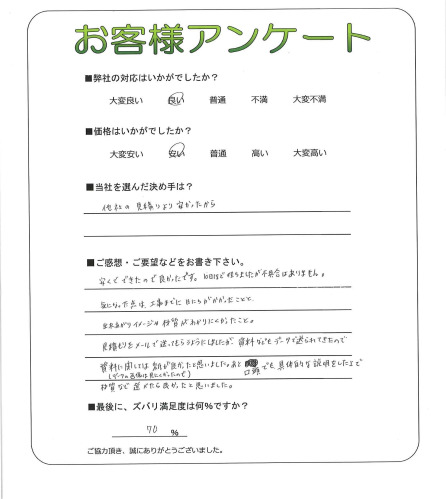 お客様アンケート
■弊社の対応はいかがでしたか?
大変良い 良い 普通 不満 大変不満
■価格はいかがでしたか?
大変安い 安い 普通 高い 大変高い
■当社を選んだ決め手は?
他社の見積りより安かったから
■ご感想・ご要望などをお書き下さい。
安くできたので良かったです。10日ほど経ちましたが不具合はありません。
気になった点は、工事までに日にちがかかったことと、
出来あがりイメージや材質がわかりにくかったこと。
見積もりをメールで送ってもらうようにしましたが、資料などもデータで送られてきたので
資料に関しては紙が良かったと思いました。あと口頭でも具体的な説明をした上で
(データの画像は見にくかったので)
材質など選べたら良かったと思いました。
■最後に、ズバリ満足度は何%ですか?
70 %
ご協力頂き、誠にありがとうございました。